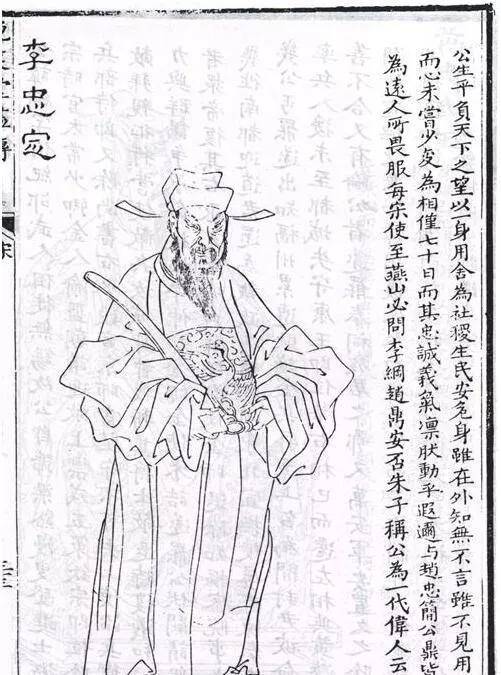 公生平負天下之望以一身用舍為社稷生民安危身雖在外知無不言雖不見用
而心未嘗少變為相僅七十日而其忠誠義氣凛然動乎遐邇与趙忠簡公鼎皆
為遠人所畏服每宋使至燕山必問李綱趙鼎安否朱子稱公為一代偉人云
李忠定
宋